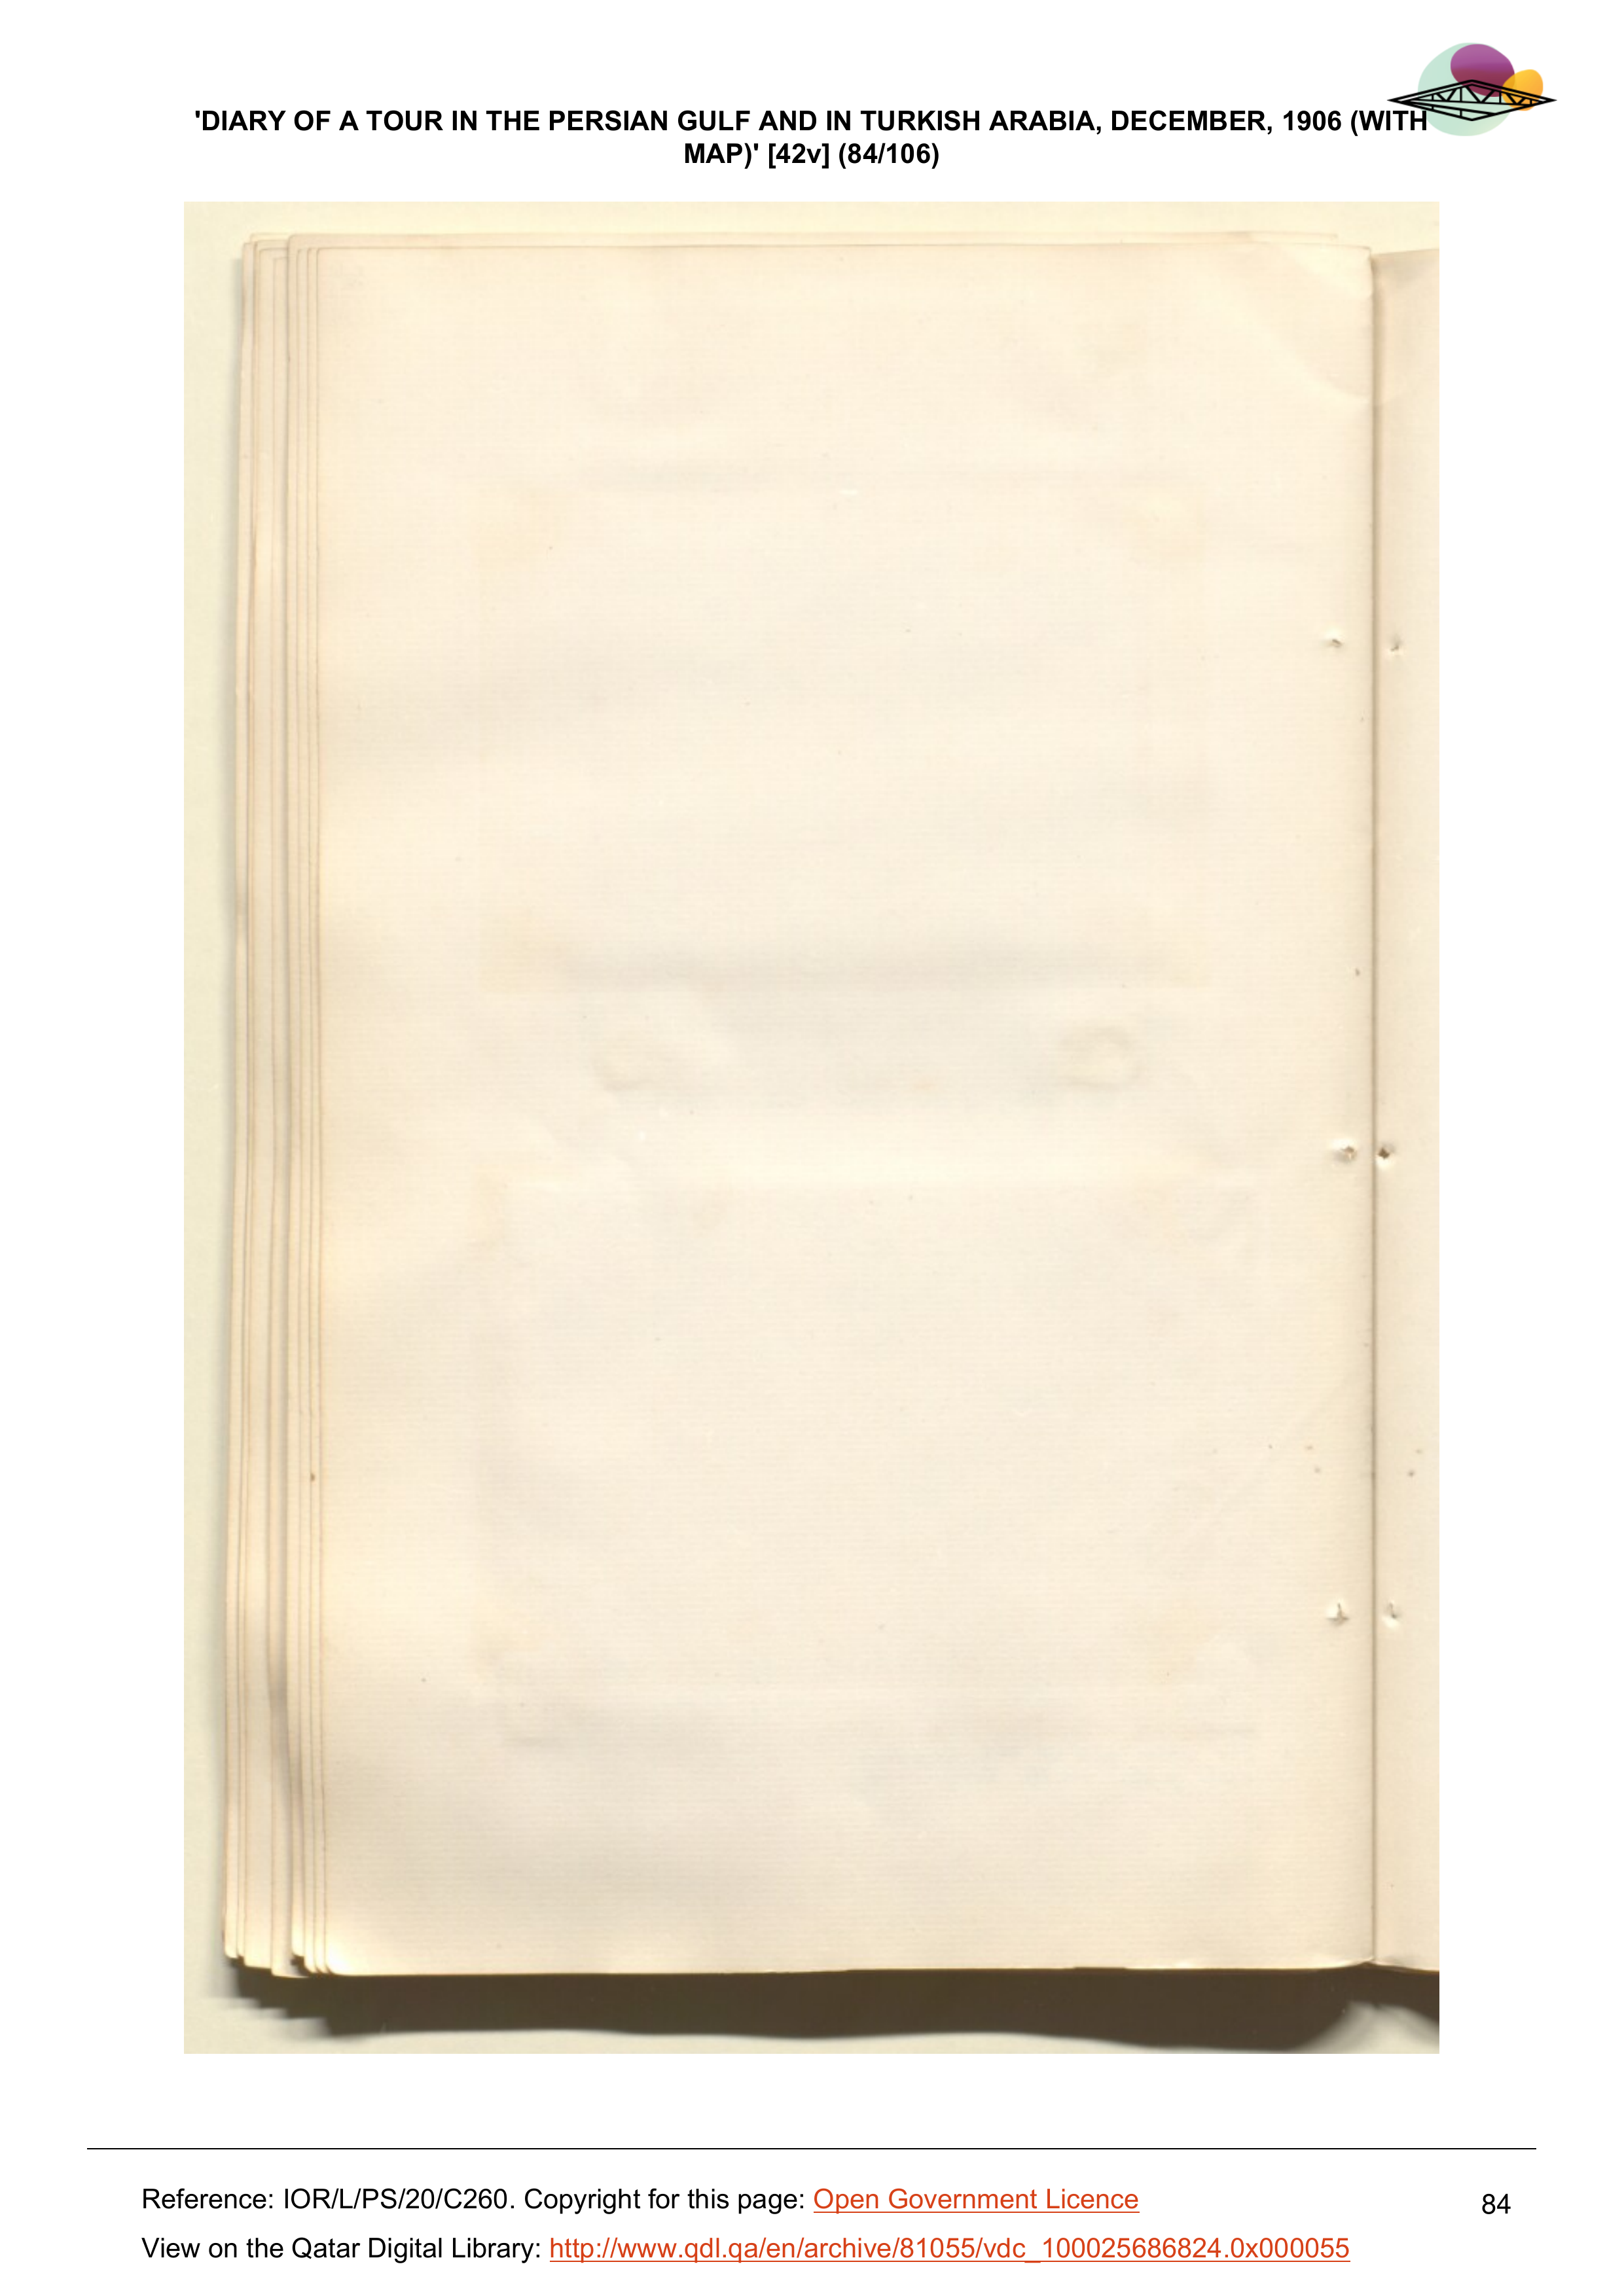 'DIARY OF A TOUR IN THE PERSIAN GULF AND IN TURKISH ARABIA, DECEMBER, 1906 (WITH
MAP)' [42v] (84/106)
Reference: IOR/L/PS/20/C260. Copyright for this page: Open Government Licence
84
View on the Qatar Digital Library: http://www.qdl.qa/en/archive/81055/vdc_100025686824.0x000055